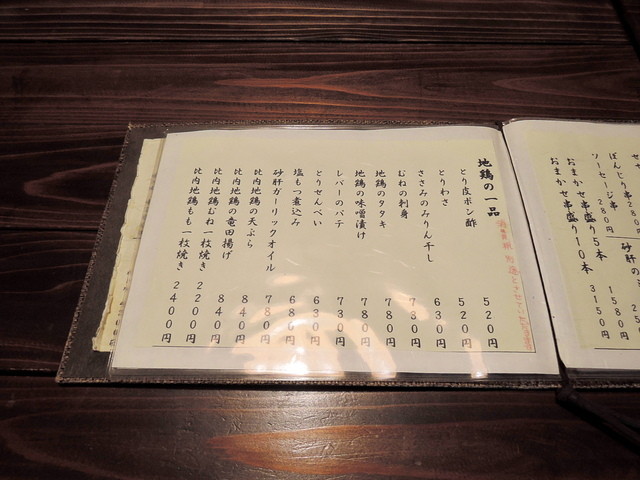 ぼんじり串 280円
ソーセージ串 280円
おまかせ串盛り5本 1580円
おまかせ串盛り10本 3150円
砂肝の
地鶏の一品
とり皮ポン酢 520円
とりわさ 520円
ささみのみりん干し 630円
むねの刺身 780円
地鶏のタタキ 780円
地鶏の味噌漬け 780円
レバーのパテ 730円
とりせんべい 630円
塩もつ煮込み 680円
砂肝ガーリックオイル 780円
比内地鶏の天ぷら 840円
比内地鶏の竜田揚げ 840円
比内地鶏むね一枚焼き 2200円
比内地鶏もも一枚焼き 2400円